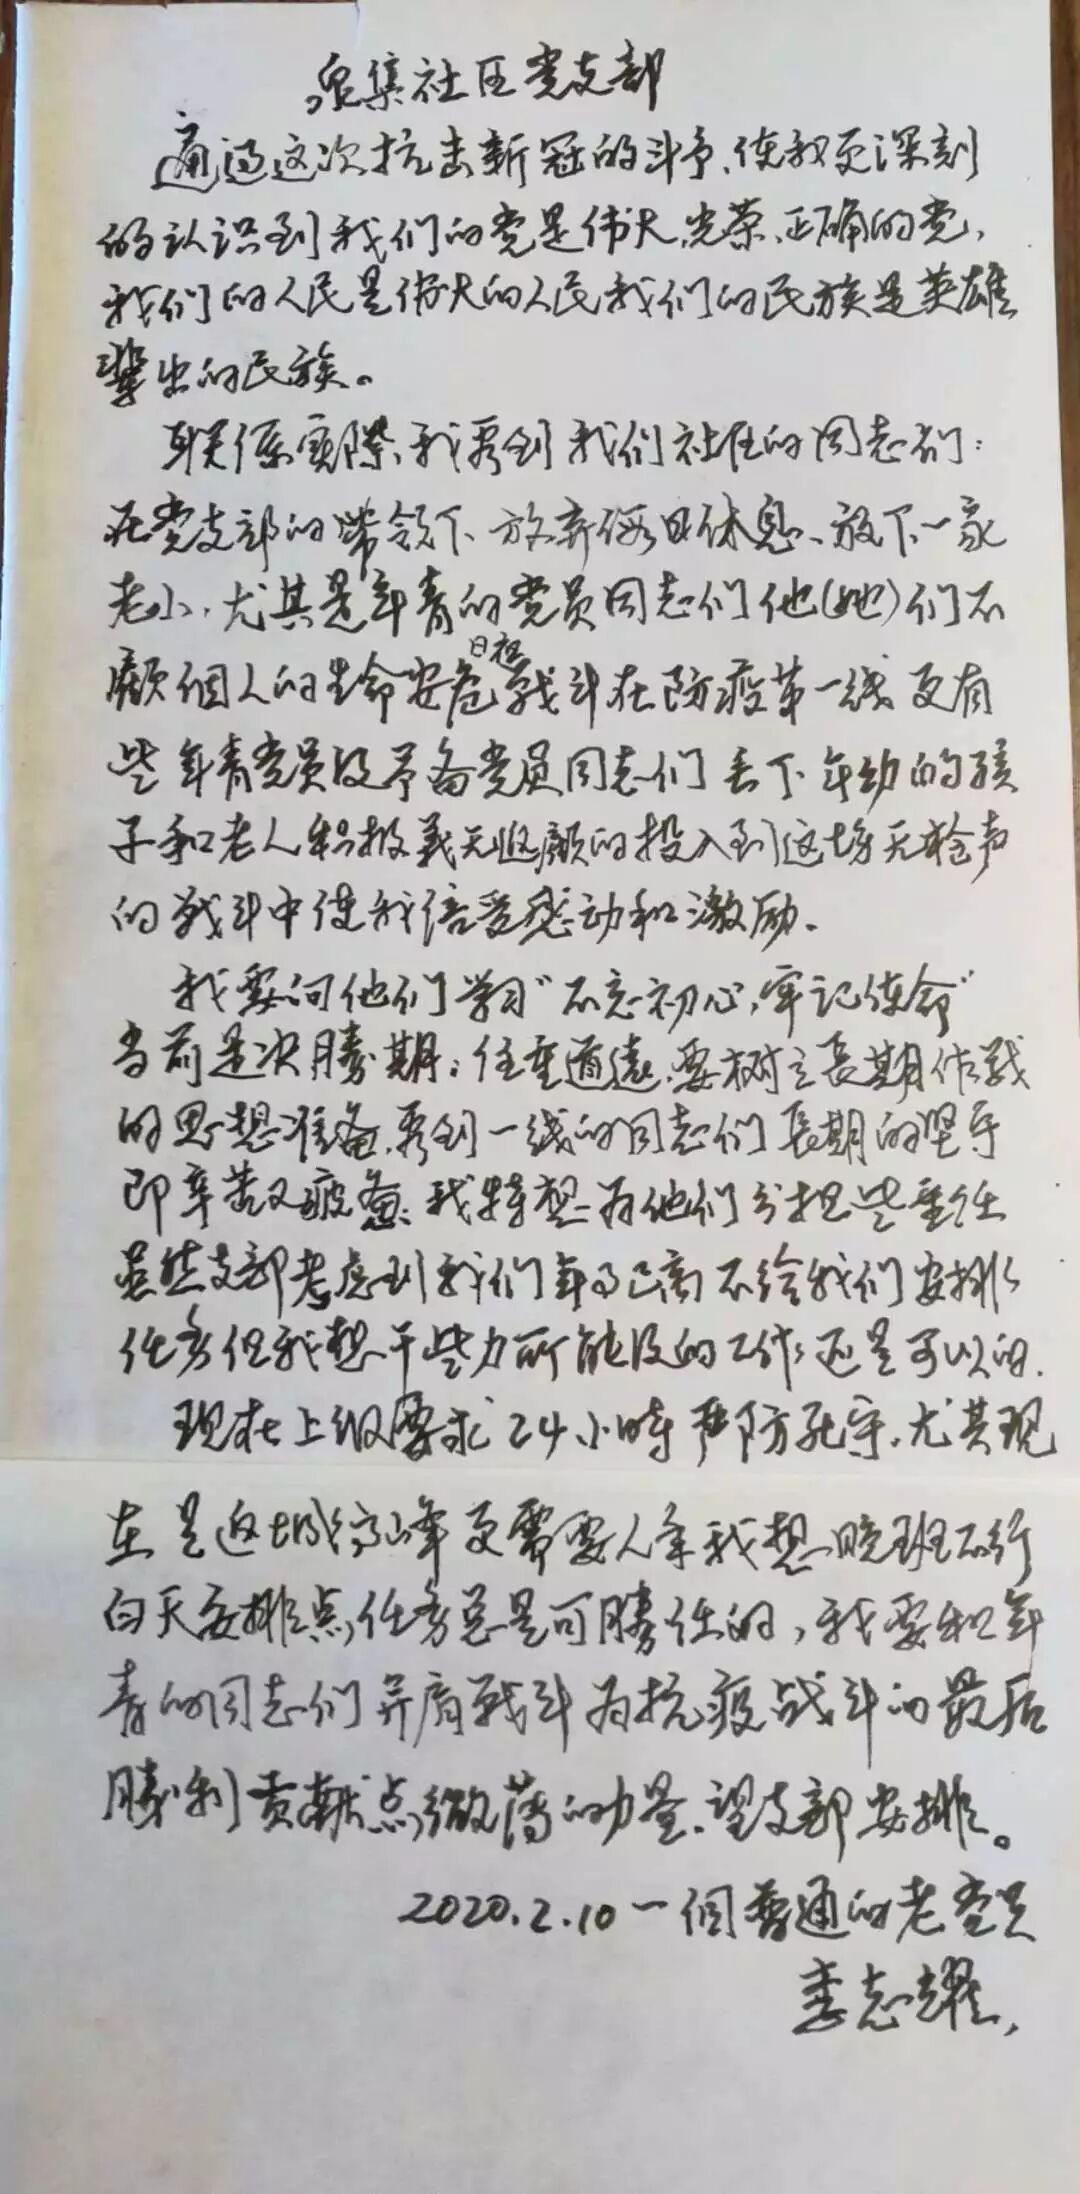 泉集社区党支部
通过这次抗击新冠的斗争、使我更深刻
的认识到我们的党是伟大、光荣、正确的党、
我们的人民是伟大的人民我们的民族是英雄
辈出的民族。
联係實際、我看到我们社区的同志们:
在党支部的带领下、放弃假日休息、放下一家
老小、尤其是年青的党员同志们他(她)们不
顧個人的生命安危日夜戰斗在防疫第一线更有
些年青党员及予备党员同志们丢下年幼的孩
子和老人积极義无返顧的投入到这場无枪声
的戰斗中使我倍受感动和激励、
我要向他们学习“不忘初心,牢记使命”
当前是决勝期;任重道遠、要树立長期作戰
的思想准备、看到一线的同志们長期的坚守
即辛苦又疲惫;我特想为他们分担些重任
虽然支部考虑到我们年事已高不给我们安排
任务但我想干些力所能及的工作还是可以的.
现在上级要求24小時严防死守、尤其现
在是返城高峰更需要人手我想晚班不行
白天安排点任务总是可勝任的,我要和年
青的同志们并肩戰斗为抗疫战斗的最后
勝利贡献点微薄的力量、望支部安排。
2020.2.10一個普通的老党员
李志耀,